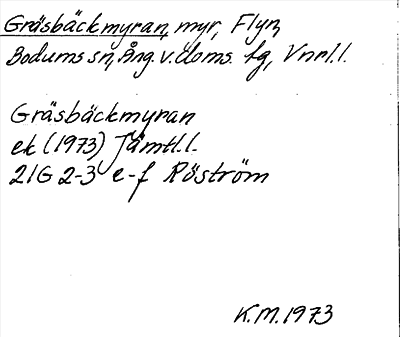 Gräsbäckmyran, myr, Flyn,
Bodums sn, Ång. v. doms. tg, Vnrl. l.
Gräsbäckmyran
ek (1973) Jämtl. l.
21G 2-3 e-f Röström
K.M. 1973